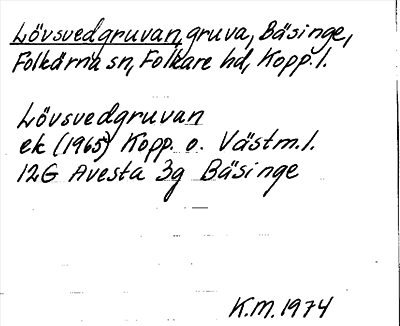 Lövsvedgruvan, gruva, Bäsinge,
Folkärna sn, Folkare hd, Kopp. l.
Lövsvedgruvan
ek (1965) Kopp. o. Västm. l.
12G Avesta 3g Bäsinge
K.M. 1974